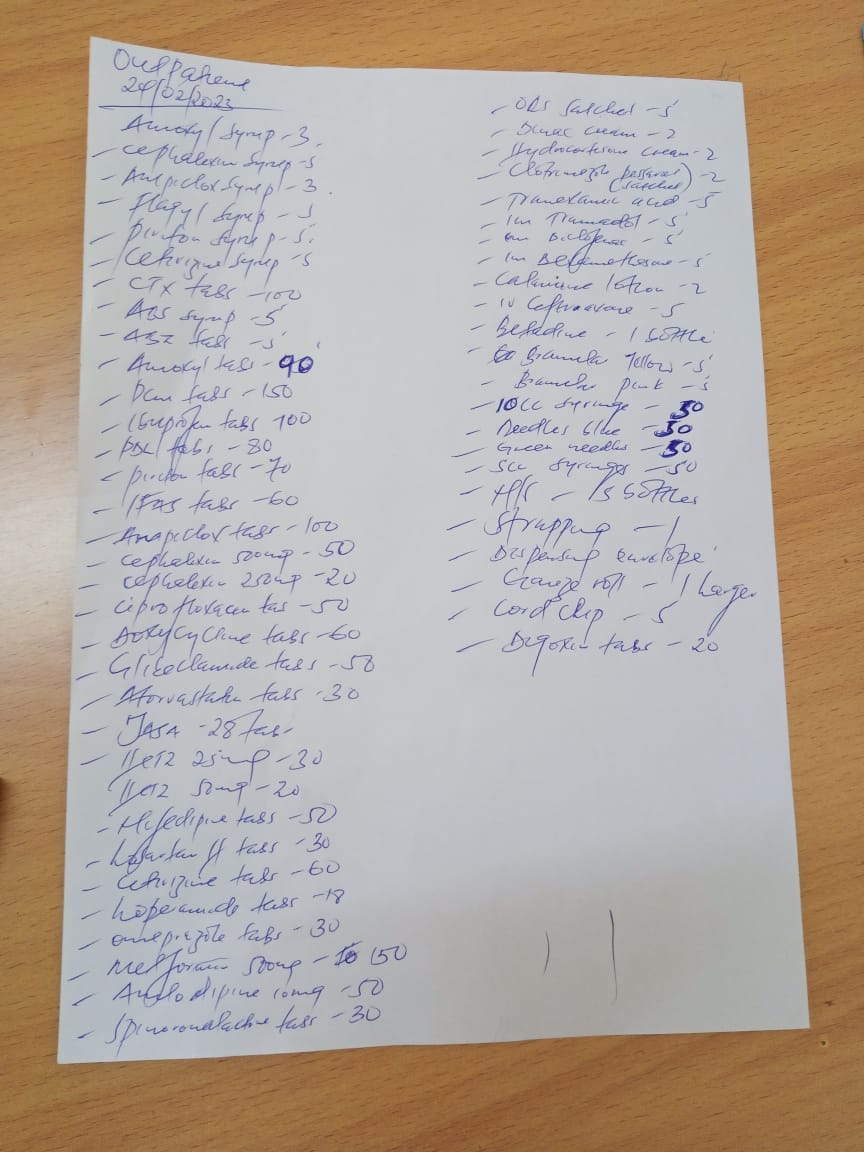 Outpatient
24/02/2023
Amoxyl syrup - 3
- Cephalexin syrup - 5
- Ampiclox syrup - 3
- Flagyl syrup - 5
- Piriton syrup - 5
- Cetirizine syrup - 5
- CTX tabs - 100
- ABS syrup - 5
- ABZ tabs - 5
- Amoxyl tabs - 90
- Pcm tabs - 150
- Ibuprofen tabs 100
- PDL tabs - 80
- piriton tabs - 70
- IFAS tabs - 60
- Ampiclox tabs - 100
- cephalexin 500mg - 50
- cephalexin 250mg - 20
- Ciprofloxacin tas - 50
- Doxycycline tabs - 60
- Glibeclamide tabs - 50
- Atorvastatin tabs - 30
- JASA - 28 tabs
- HCTZ 25mg - 30
HCTZ 50mg - 20
- Nifedipine tabs - 50
- Losartan H tabs - 30
- Cetirizine tabs - 60
- Loperamide tabs - 18
- omeprazole tabs - 30
- Metformin 500mg - 150
- Amlodipine 10mg - 50
- Spinoronalactone tabs - 30
- ORS Satchet - 5
- cream - 2
- Hydrocortisone cream - 2
- Clotrimazole pessaries - 2
(satchet)
- Tranexamic acid - 5
- Im Tramadol - 5
- Im Diclofenac - 5
- Im Betamethasone - 5
- Calamine lotion - 2
- IV Ceftriaxone - 5
- Betadine - 1 bottle
- Branular Yellow - 5
- Branular pink - 5
- 10cc syringe - 50
- Needles blue - 50
- Green needles - 50
- 5cc syringes - 50
- H/S - bottles
- Strapping - 1
- Dispensing envelope
- Gauze roll - 1 Larger
- Cord clip - 5
- Digoxin tabs - 20